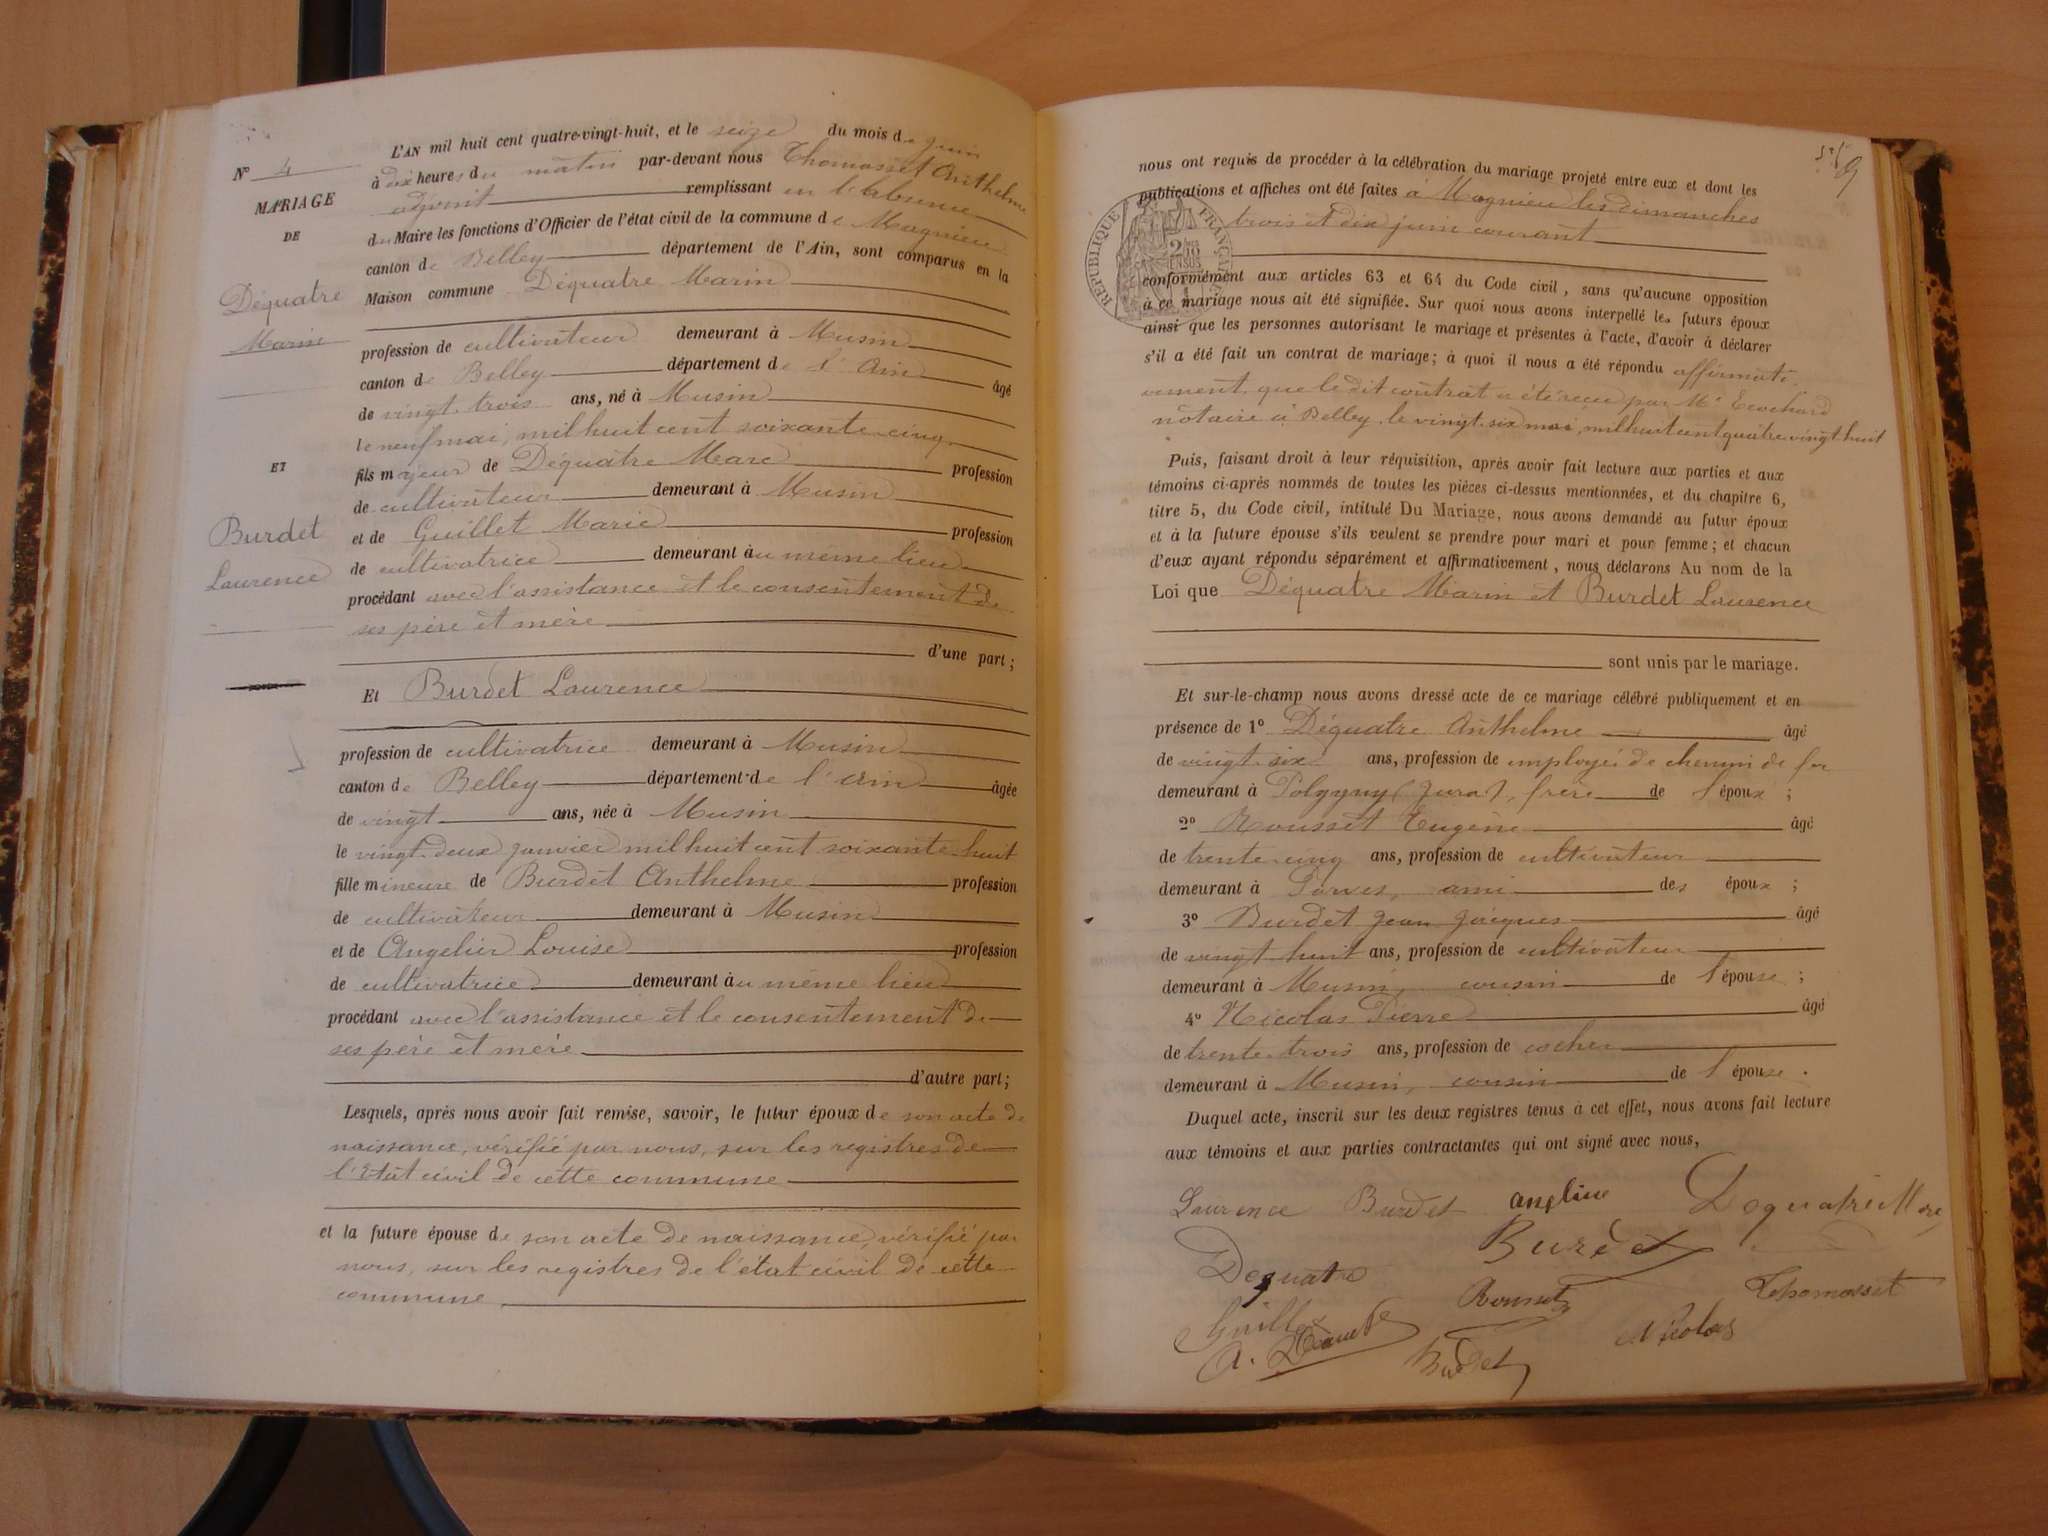 N° 4
MARIAGE
DE
Déquatre
Marin
ET
Burdet
Laurence
L'AN mil huit cent quatre-vingt-huit, et le seize du mois de juin
à dix heures du matin par-devant nous Thomasset Anthelme
adjoint remplissant en l'absence
du Maire les fonctions d'Officier de l'état civil de la commune de Magnieu
canton de Belley département de l'Ain, sont comparus en la
Maison commune Déquatre Marin
profession de cultivateur demeurant à Musin
canton de Belley département de l'Ain âgé
de vingt-trois ans, né à Musin
le neuf mai, mil huit cent soixante-cinq
fils majeur de Déquatre Marc profession
de cultivateur demeurant à Musin
et de Guillet Marie profession
de cultivatrice demeurant au même lieu
procédant avec l'assistance et le consentement de
ses père et mère
d'une part;
Et Burdet Laurence
profession de cultivatrice demeurant à Musin
canton de Belley département de l'Ain âgée
de vingt ans, née à Musin
le vingt-deux janvier mil huit cent soixante-huit
fille mineure de Burdet Anthelme profession
de cultivateur demeurant à Musin
et de Angelier Louise profession
de cultivatrice demeurant au même lieu
procédant avec l'assistance et le consentement de
ses père et mère
d'autre part;
Lesquels, après nous avoir fait remise, savoir, le futur époux de son acte de
naissance, vérifié par nous, sur les registres de
l'état civil de cette commune
et la future épouse de son acte de naissance, vérifié par
nous, sur les registres de l'état civil de cette
commune
nous ont requis de procéder à la célébration du mariage projeté entre eux et dont les
publications et affiches ont été faites à Magnieu les dimanches
trois et dix juin courant
RÉPUBLIQUE FRANÇAISE
conformément aux articles 63 et 64 du Code civil, sans qu'aucune opposition
à ce mariage nous ait été signifiée. Sur quoi nous avons interpellé les futurs époux
ainsi que les personnes autorisant le mariage et présentes à l'acte, d'avoir à déclarer
s'il a été fait un contrat de mariage; à quoi il nous a été répondu affirmati-
vement, que le dit contrat a été reçu par Me
notaire à Belley, le vingt-six mai, mil huit cent quatre vingt huit
Puis, faisant droit à leur réquisition, après avoir fait lecture aux parties et aux
témoins ci-après nommés de toutes les pièces ci-dessus mentionnées, et du chapitre 6,
titre 5, du Code civil, intitulé Du Mariage, nous avons demandé au futur époux
et à la future épouse s'ils veulent se prendre pour mari et pour femme; et chacun
d'eux ayant répondu séparément et affirmativement, nous déclarons Au nom de la
Loi que Déquatre Marin et Burdet Laurence
sont unis par le mariage.
Et sur-le-champ nous avons dressé acte de ce mariage célébré publiquement et en
présence de 1° Déquatre Anthelme âgé
de vingt-six ans, profession de employé de chemin de fer
demeurant à Polygny (Jura), frère de l'époux;
2° Rousset Eugène âgé
de trente-cinq ans, profession de cultivateur
demeurant à Parves, ami des époux;
3° Burdet Jean Jacques âgé
de vingt-huit ans, profession de cultivateur
demeurant à Musin, cousin de l'épouse;
4° Nicolas Pierre âgé
de trente-trois ans, profession de cocher
demeurant à Musin, cousin de l'épouse.
Duquel acte, inscrit sur les deux registres tenus à cet effet, nous avons fait lecture
aux témoins et aux parties contractantes qui ont signé avec nous,
Laurence Burdet Dequatre Marc
Dequatre Burdet
Rousset Thomasset
Guillet Nicolas
Burdet